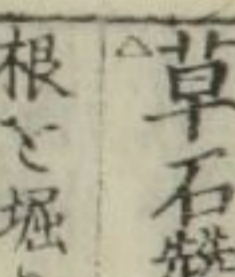 △草石蠶
根を堀